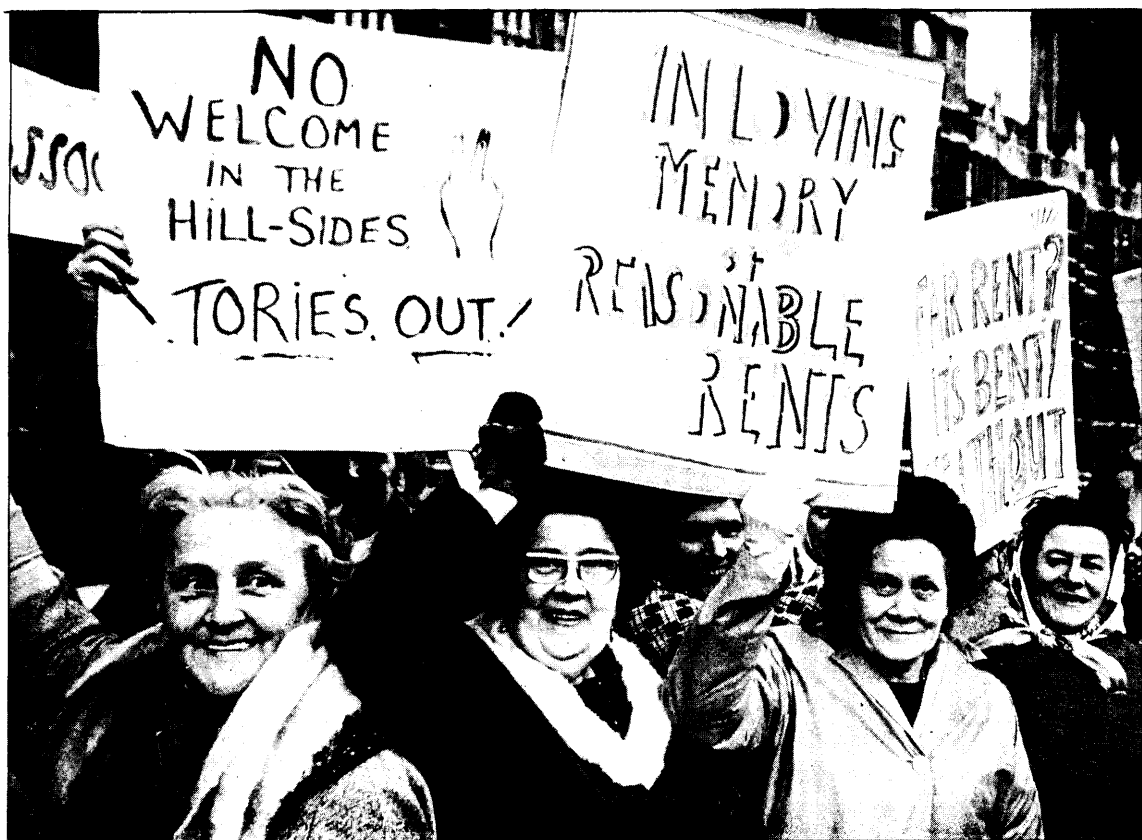 NO
WELCOME
IN THE
HILL-SIDES
TORIES. OUT!
IN LOVING
MEMORY
OF
REASONABLE
RENTS
RENT?
ITS BENT!